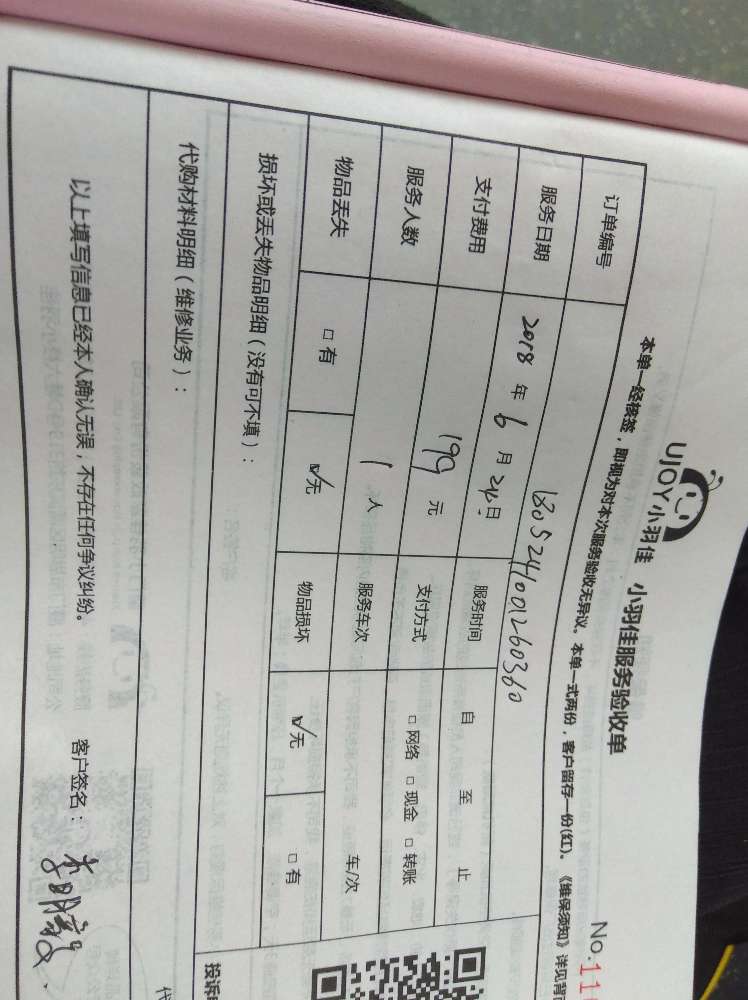 UJOY小羽佳 小羽佳服务验收单
No.11
本单一经核签，即视为对本次服务验收无异议。本单一式两份，客户留存一份(红)。《维保须知》详见背
订单编号 180524001260360
服务日期 2018 年 6 月 24 日 服务时间 自 至 止
支付费用 199 元 支付方式 □ 网络 □ 现金 □ 转账
服务人数 1 人 服务车次 车/次
物品丢失 □ 有 ☑无 物品损坏 ☑无 □ 有
损坏或丢失物品明细（没有可不填）：
投诉
代购材料明细（维修业务）：
代
以上填写信息已经本人确认无误，不存在任何争议纠纷。 客户签名：